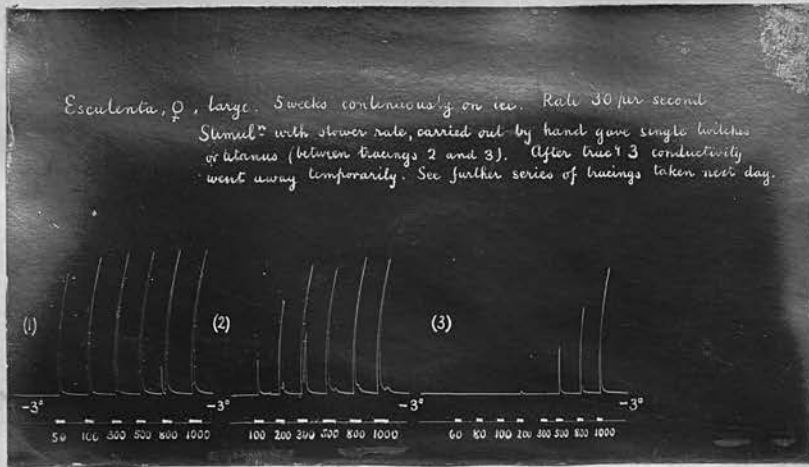 Esculenta, ♀, large. 5 weeks continuously on ice. Rate 30 per second
Stimulⁿ with slower rate, carried out by hand gave single twitches
or tetanus (between tracings 2 and 3). After tracᵍ 3 conductivity
went away temporarily. See further series of tracings taken next day.
(1) (2) (3)
-3° -3° -3° -3°
50 100 300 500 800 1000 100 200 300 500 800 1000 60 80 100 200 300 500 800 1000